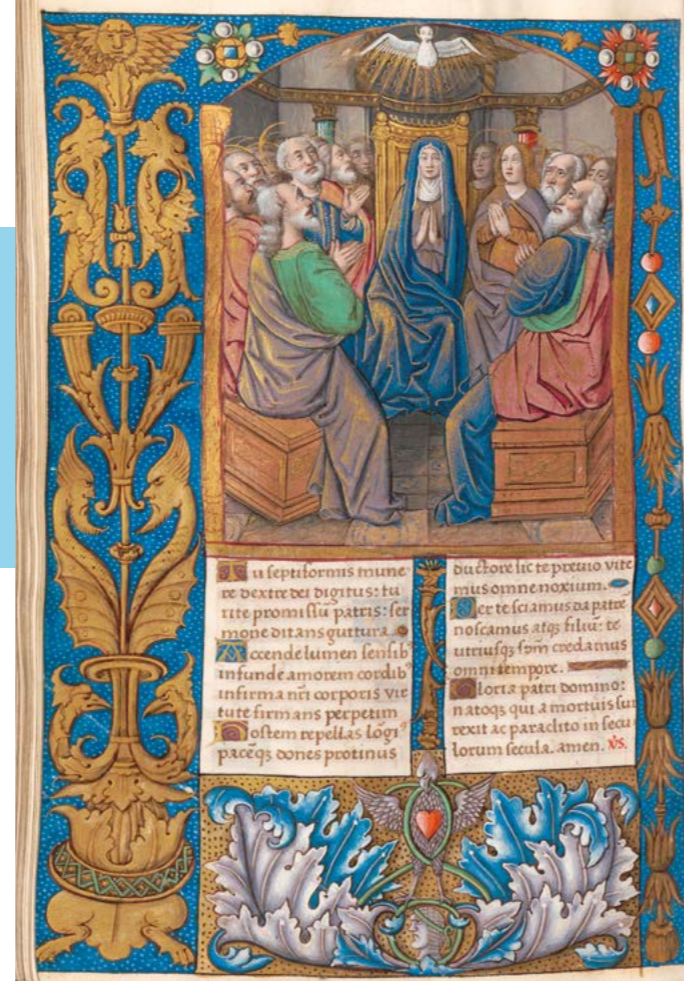 Tu septiformis mune
re dextre dei digitus: tu
rite promissũ patris: ser
mone ditans guttura.
Accende lumen sensib'
infunde amorem cordib'
infirma nr̃i corporis vir
tute firmans perpetim
Hostem repellas lõgi
pacẽq3 dones protinus
ductore sic te previo vite
mus omne noxium.
Per te sciamus da patrẽ
noscamus atq3 filiũ: te
utriusq3 sp̃m credamus
omni tempore.
Gloria patri domino:
natoq3 qui a mortuis sur
rexit ac paraclito in secu
lorum secula. amen. v̇s.